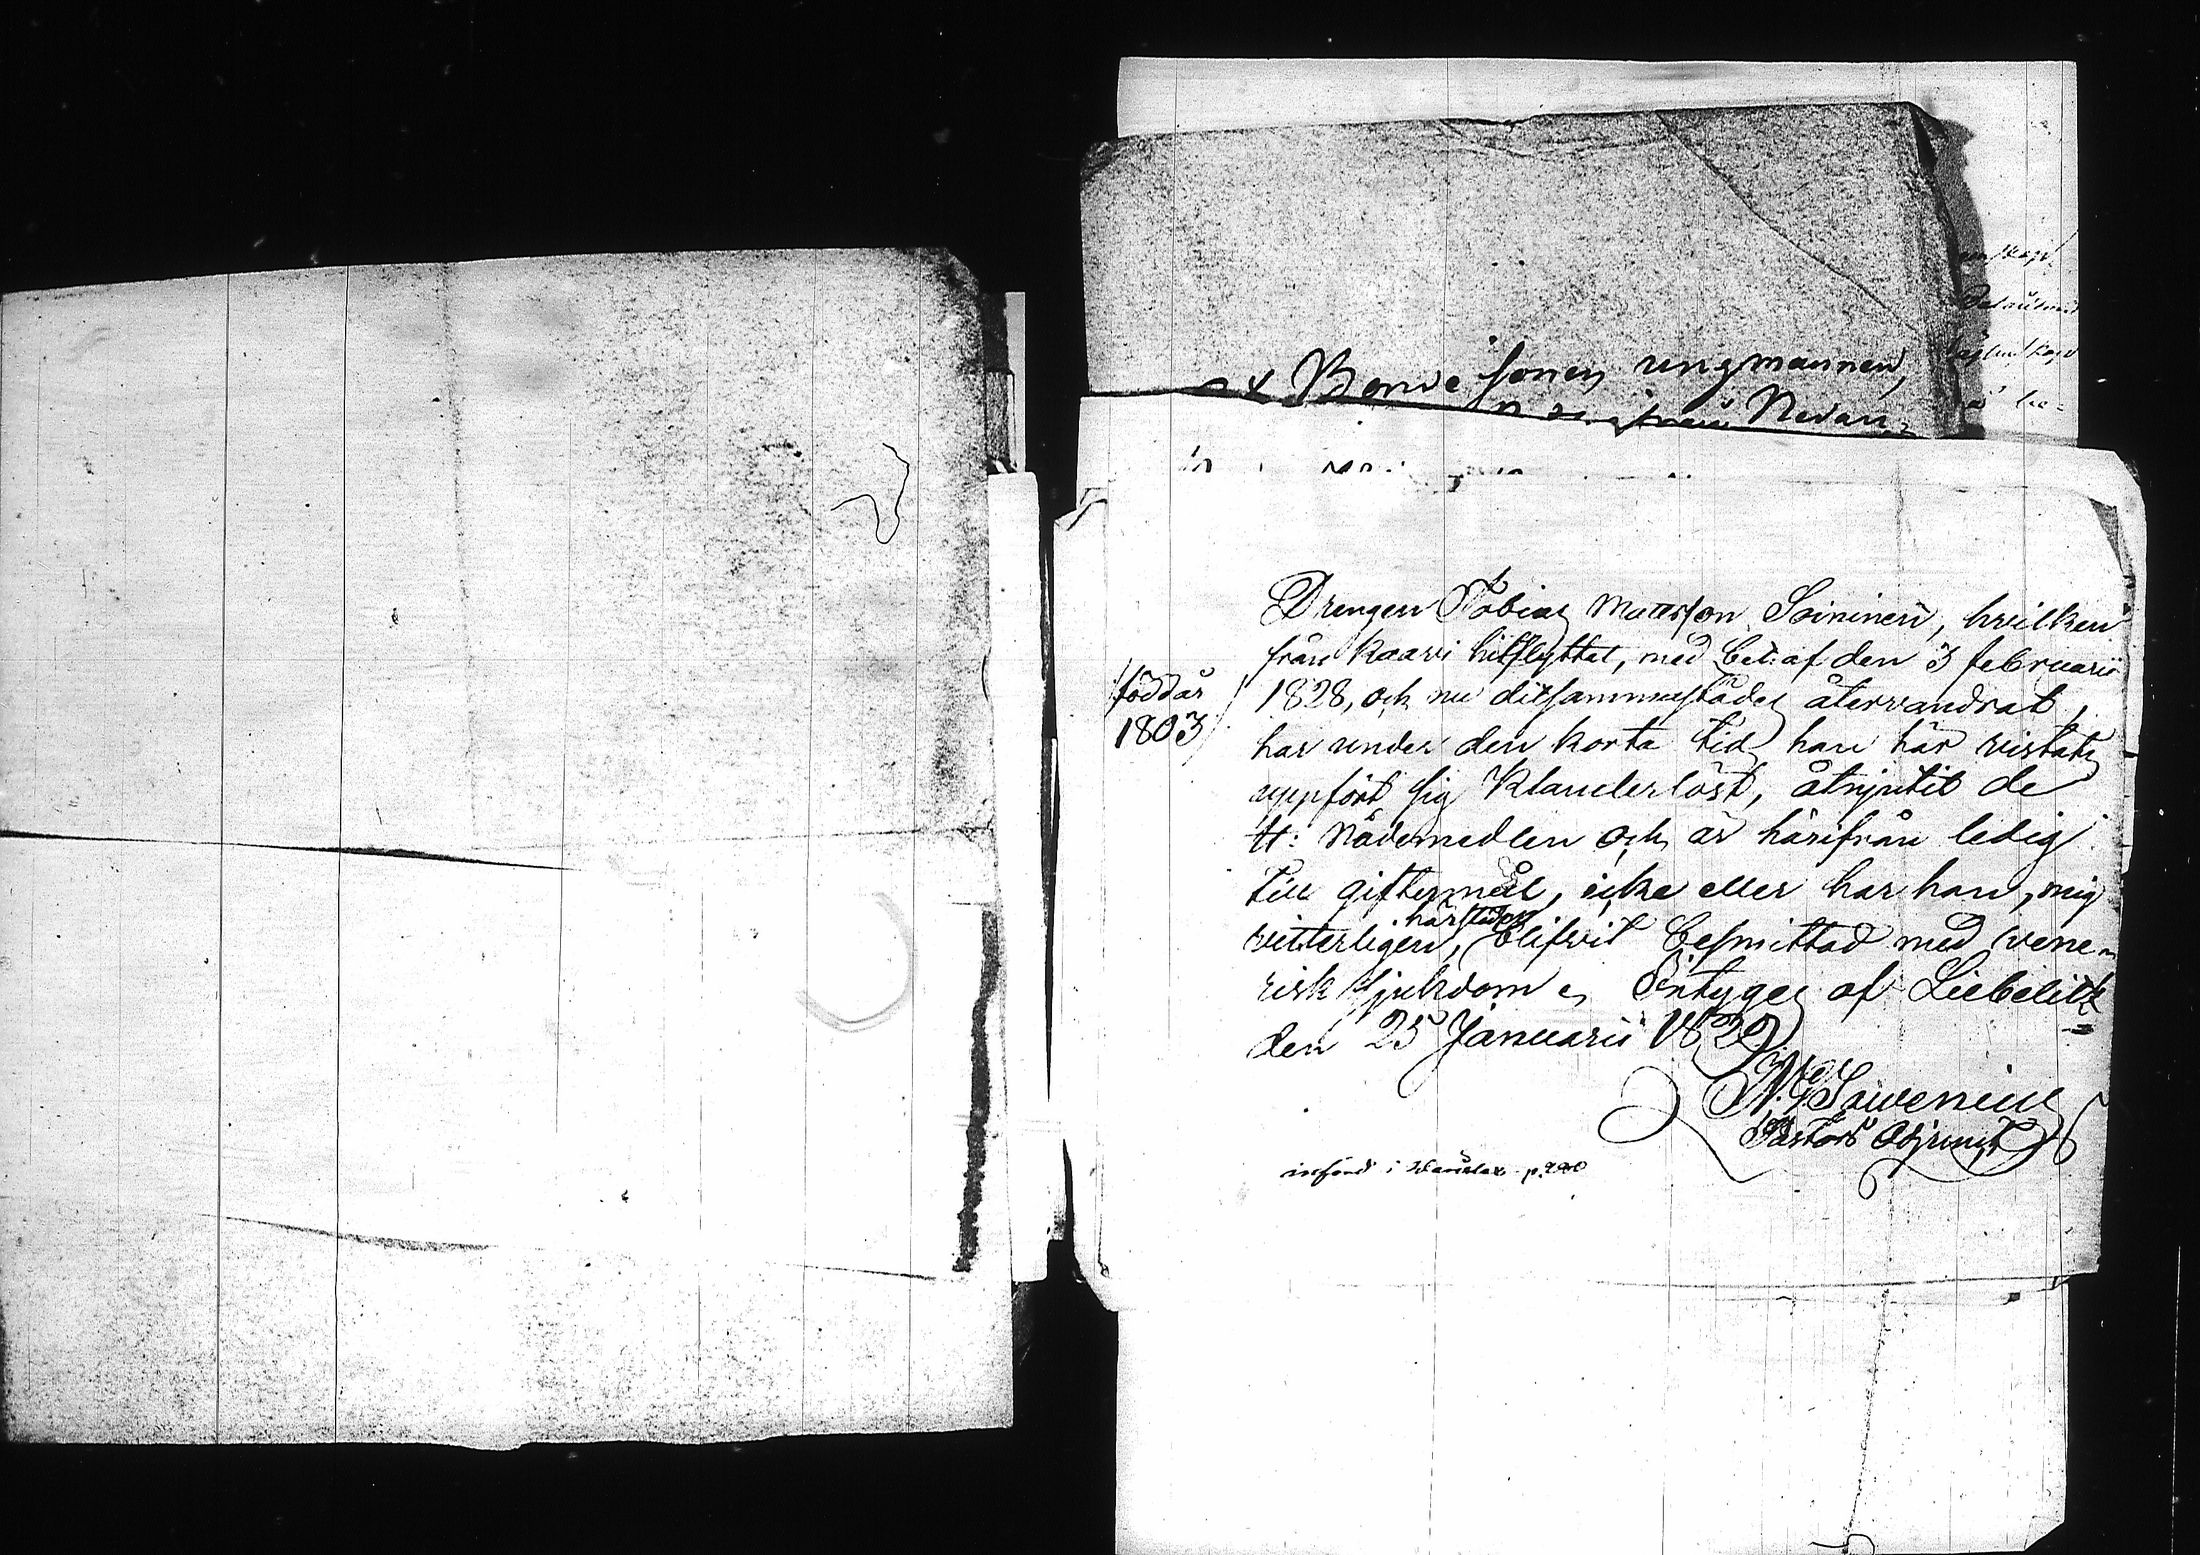 Bonde sonen ungmannen,
Nedan
Drengen Tobias Matesson Soininen, hvilken
från Kaavi hitflyttat, med bet: af den 3 februarii
född år
1803
1828, och nu ditsammastädes återvandrat,
har under den korta tid han här vistats
uppfört sig klanderlöst, åtnjutit de
H: Nådemedlen och är härifrån ledig
till giftermål, icke eller har han, mig
härstädes
vitterligen, blifvit besmittad med vene-
risk sjukdom, Intygas af Liebelitz
den 25 Januarii 1829
Pastors Adjunct
införd i